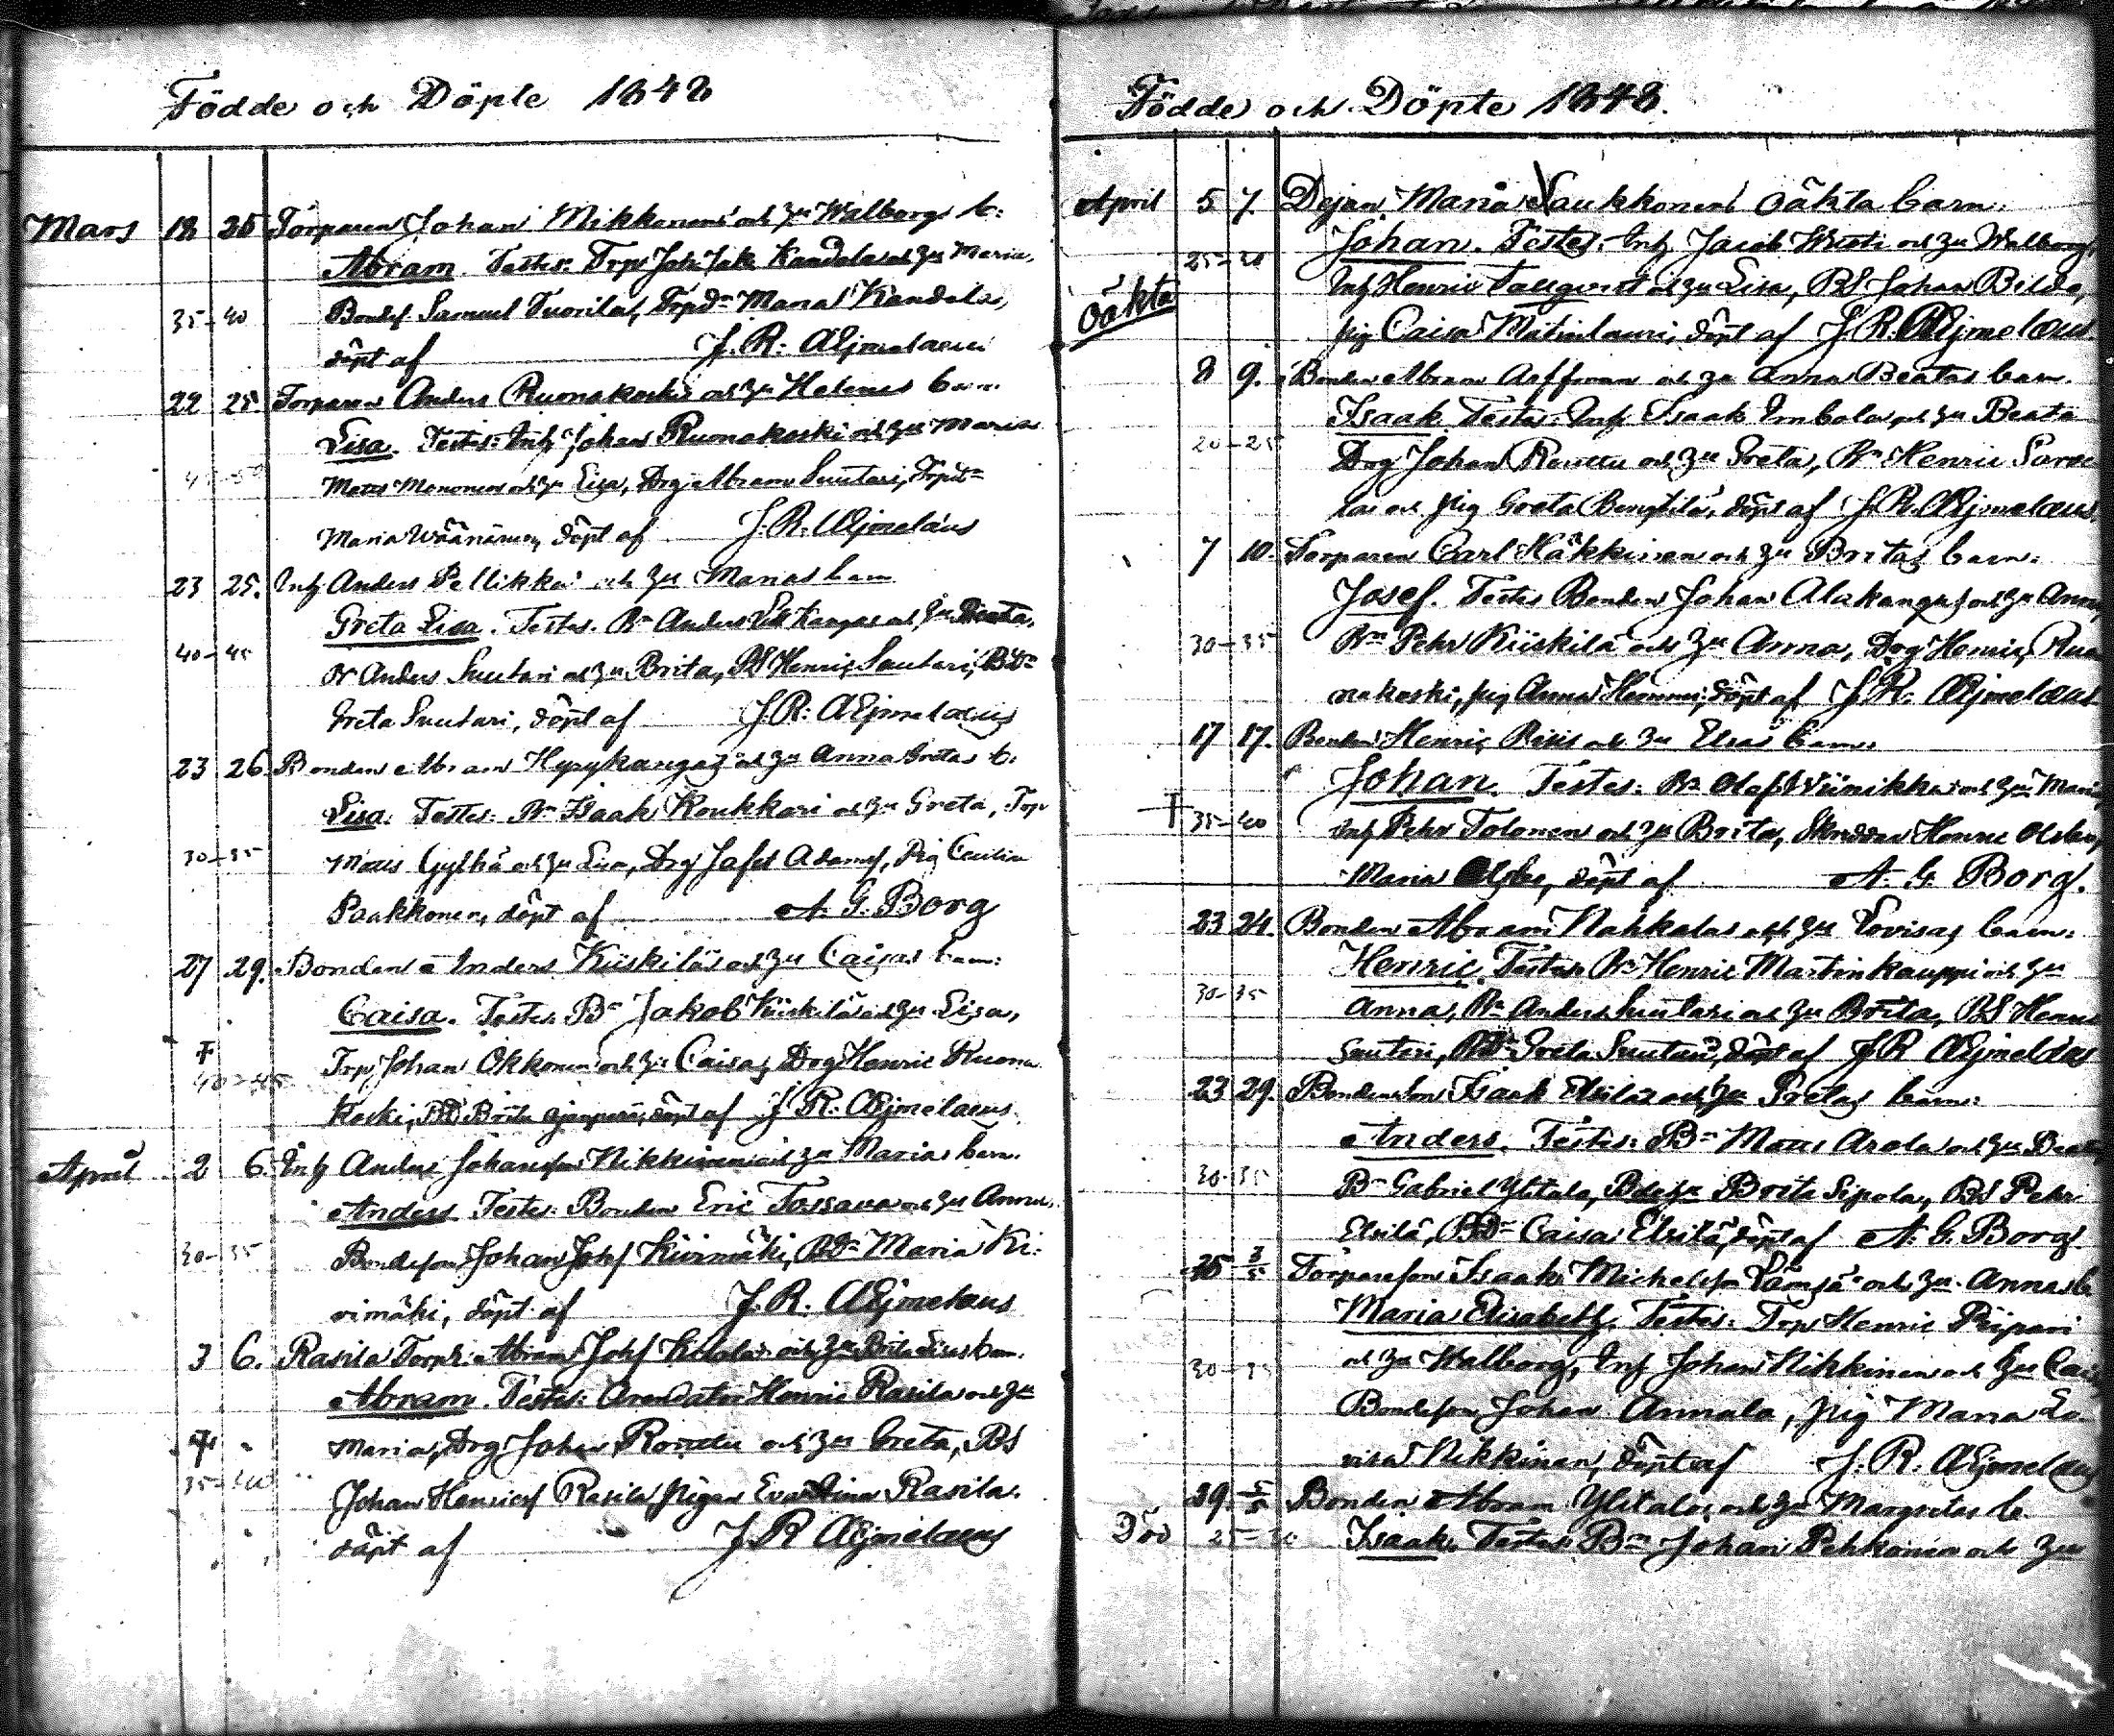 Födde och Döpte 1848
Mars 18 25 Torparen Johan Mikkonens och hu Walborgs b:
Abram. Testes: Torp Joh: Jak: Kandela och hu Maria,
35-40 Bondes. Samuel Tuorila, Torpdr Maria Kandela,
döpt af J. R. Æjmelaeus
22 25. Torparen Anders Ruonakoskis och hu Helenas barn
Lisa. Testes: Inh Johan Ruonakoski och hu Maria
Mats Mononen och hu Lisa, Drg Abram Suutari, Torpdr
Maria Wäänänen, döpt af J. R. Æjmelæus
23 25. Inh Anders Pellikka och hu Marias barn
Greta Lisa. Testes. Bn Anders Kangas och hu Beata,
40-45 Bn Anders Suutari och hu Brita, BS Henric Suutari, BDr
Greta Suutari, döpt af J. R. Æjmelæus
23 26. Bonden Abram Hyrykangas och hu Anna Gretas b:
Lisa. Testes: Bn Isaak Koukkari och hu Greta, Torp
30-35 Mats Gylhä och hu Lisa, Drg Jafet Adamsf, Pig Cecilia
Paakkonen, döpt af A. G. Borg
27 29. Bonden Anders Kiiskiläs och hu Caisas barn:
Caisa. Testes. Bn Jakob Kiiskilä och hu Lisa,
† Torp Johan Okkonen och hu Caisa, Drg Henric Ruona
40-45
koski, BD Brita, döpt af J. R. Æjmelaeus.
April 2 6. Inh Anders Johansson Nikkinens och hu Marias barn.
Anders. Testes: Bonden Eric Tossava och hu Anna,
30-35 Bondeson Johan Johsf Kiirimäki, BDr Maria Ki:
rimäki, döpt af J. R. Æjmelæus
3 6. Rasila Torpr: Abram Johsf och hu Brita Lisas barn.
Abram. Testes: Arendator Henric Rasila och hu
† Maria, Drg Johan Routtu och hu Greta, BS
35-40
Johan Henricsf Rasila, Pigan Eva Stina Rasila.
döpt af J. R. Æjmelæus
Födde och Döpte 1848.
April 5 7. Dejan Maria Laukkonens oäkta barn:
25-30 Johan. Testes: Inh Jacob Wirsti och hu Walborg,
oäkta Inh Henric Tallqvist och hu Lisa, BS Johan Bilda,
pig Caisa Matinlauri, döpt af J. R. Æjmelæus.
8 9. Bonden Abram Aeffmans och hu Anna Beatas barn.
Isaak. Testes: Inh Isaak Imbola och hu Beata
20-25 Drg Johan Routtu och hu Greta, Bn Henric Save
la och pig Greta Bengtilä, döpt af J. R. Æjmelæus.
7 10. Torparen Carl Häkkinen och hu Britas barn:
Josef. Testes Bonden Johan Alakangas och hu Anna,
30-35 Bn Pehr Kiiskilä och hu Anna, Drg Henric Ruo
nakoski, pig Anna Hemmi, döpt af J. R. Æjmelæus
17 17. Bonden Henric och hu Elsas barn:
Johan. Testes: Bn Olof Wiinikka och hu Maria
† 35-40 Inh Pehr Tolonen och hu Brita, Henric Olsbo,
Maria Olsbo, döpt af A. G. Borg.
23 24. Bonden Abram Nahkalas och hu Lovisas barn:
Henric. Testes Bn Henric Martinkauppi och hu
30-35 Anna, Bn Anders Suutari och hu Brita, BS Henric
Suutari, BDr Greta Suutari, döpt af J R Æjmelæus
23 29. Bondeson Isaak Elsilä och hu Gretas barn:
Anders. Testes: Bn Mats Arola och hu Beata
30-35 Bn Gabriel Ylitalo, Brita Sipola, BS Pehr
Elsilä, BDr Caisa Elsilä, döpt af A. G. Borg.
25 3/5 Torpareson Isaak Michelsson Lämsä och hu Annas b
Maria Elisabeth. Testes: Torp Henric Piipari
30-35 och hu Walborg, Inh Johan Nikkinen och hu Caisa
Bondeson Johan Annala, pig Maria Lo
visa Nikkinen, döpt af J. R. Æjmelæus
29. 5/5 Bonden Abram Ylitalos och hu Margretas b.
Död 25-30 Isaak. Testes Bn Johan Pehkonen och hu